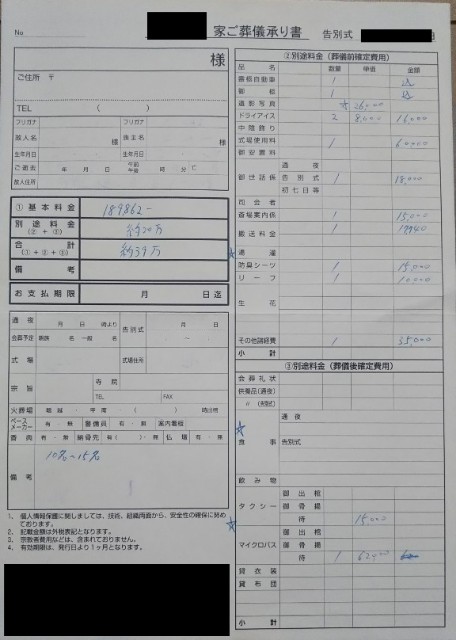 No.
家ご葬儀承り書
告別式
様
ご住所 〒
TEL ( )
フリガナ フリガナ
故人名 様 喪主名 様
生年月日 生年月日
ご逝去 年 月 日 午前 午後 時 分
故人住所
① 基本料金 189862-
別途料金 (②+③) 約20万
合計 (①+②+③) 約39万
備考
お支払期限 月 日迄
通夜 月 日 時より 告別式
会葬予定 親族 名 一般 名
式場 式場住所
宗旨 寺院
TEL FAX
火葬場
ペースメーカー 有・無 警備員 有・無 案内看板
香典 有・無 納骨先 有( )・無 仏壇 有・無
備考 10名〜15名
1. 個人情報保護に関しましては、技術、組織両面から、安全性の確保に努めております。
2. 記載金額は外税表記となります。
3. 宗教者費用などは、含まれておりません。
4. 有効期限は、発行日より1ヶ月となります。
②別途料金(葬儀前確定費用)
品名 数量 単価 金額
寝棺自動車 1 込
御棺 1 込
遺影写真 ☆ 26,000
ドライアイス 2 8,000 16,000
中陰飾り
式場使用料 1 60,000
御安置料
御世話係 通夜
告別式 1 18,000
初七日等
司会者
斎場案内係 1 15,000
搬送料金 1 17940
☆ 湯灌
防臭シーツ 1 15,000
リーフ 1 10,000
生花
その他諸経費 1 35,000
小計
③別途料金(葬儀後確定費用)
会葬礼状
供養品(通夜)
〃 (告別)
☆ 食事 通夜
告別式
飲み物
☆ タクシー 御出棺
御骨揚
待 15,000
マイクロバス 御出棺
御骨揚
待 1
貸衣裳
貸布団
小計